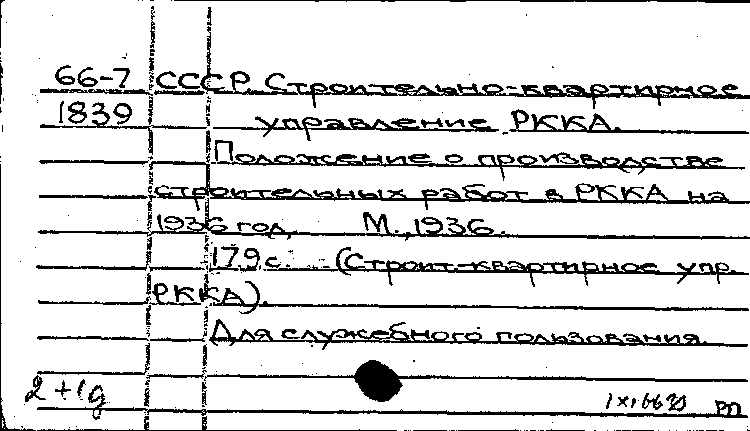 66-7 СССР. Строительно-квартирное
1839 управление РККА.
Положение о производстве
строительных работ в РККА на
1936 год. М., 1936.
179 с. (Строит.-квартирное упр.
РККА).
Для служебного пользования.
2+1д